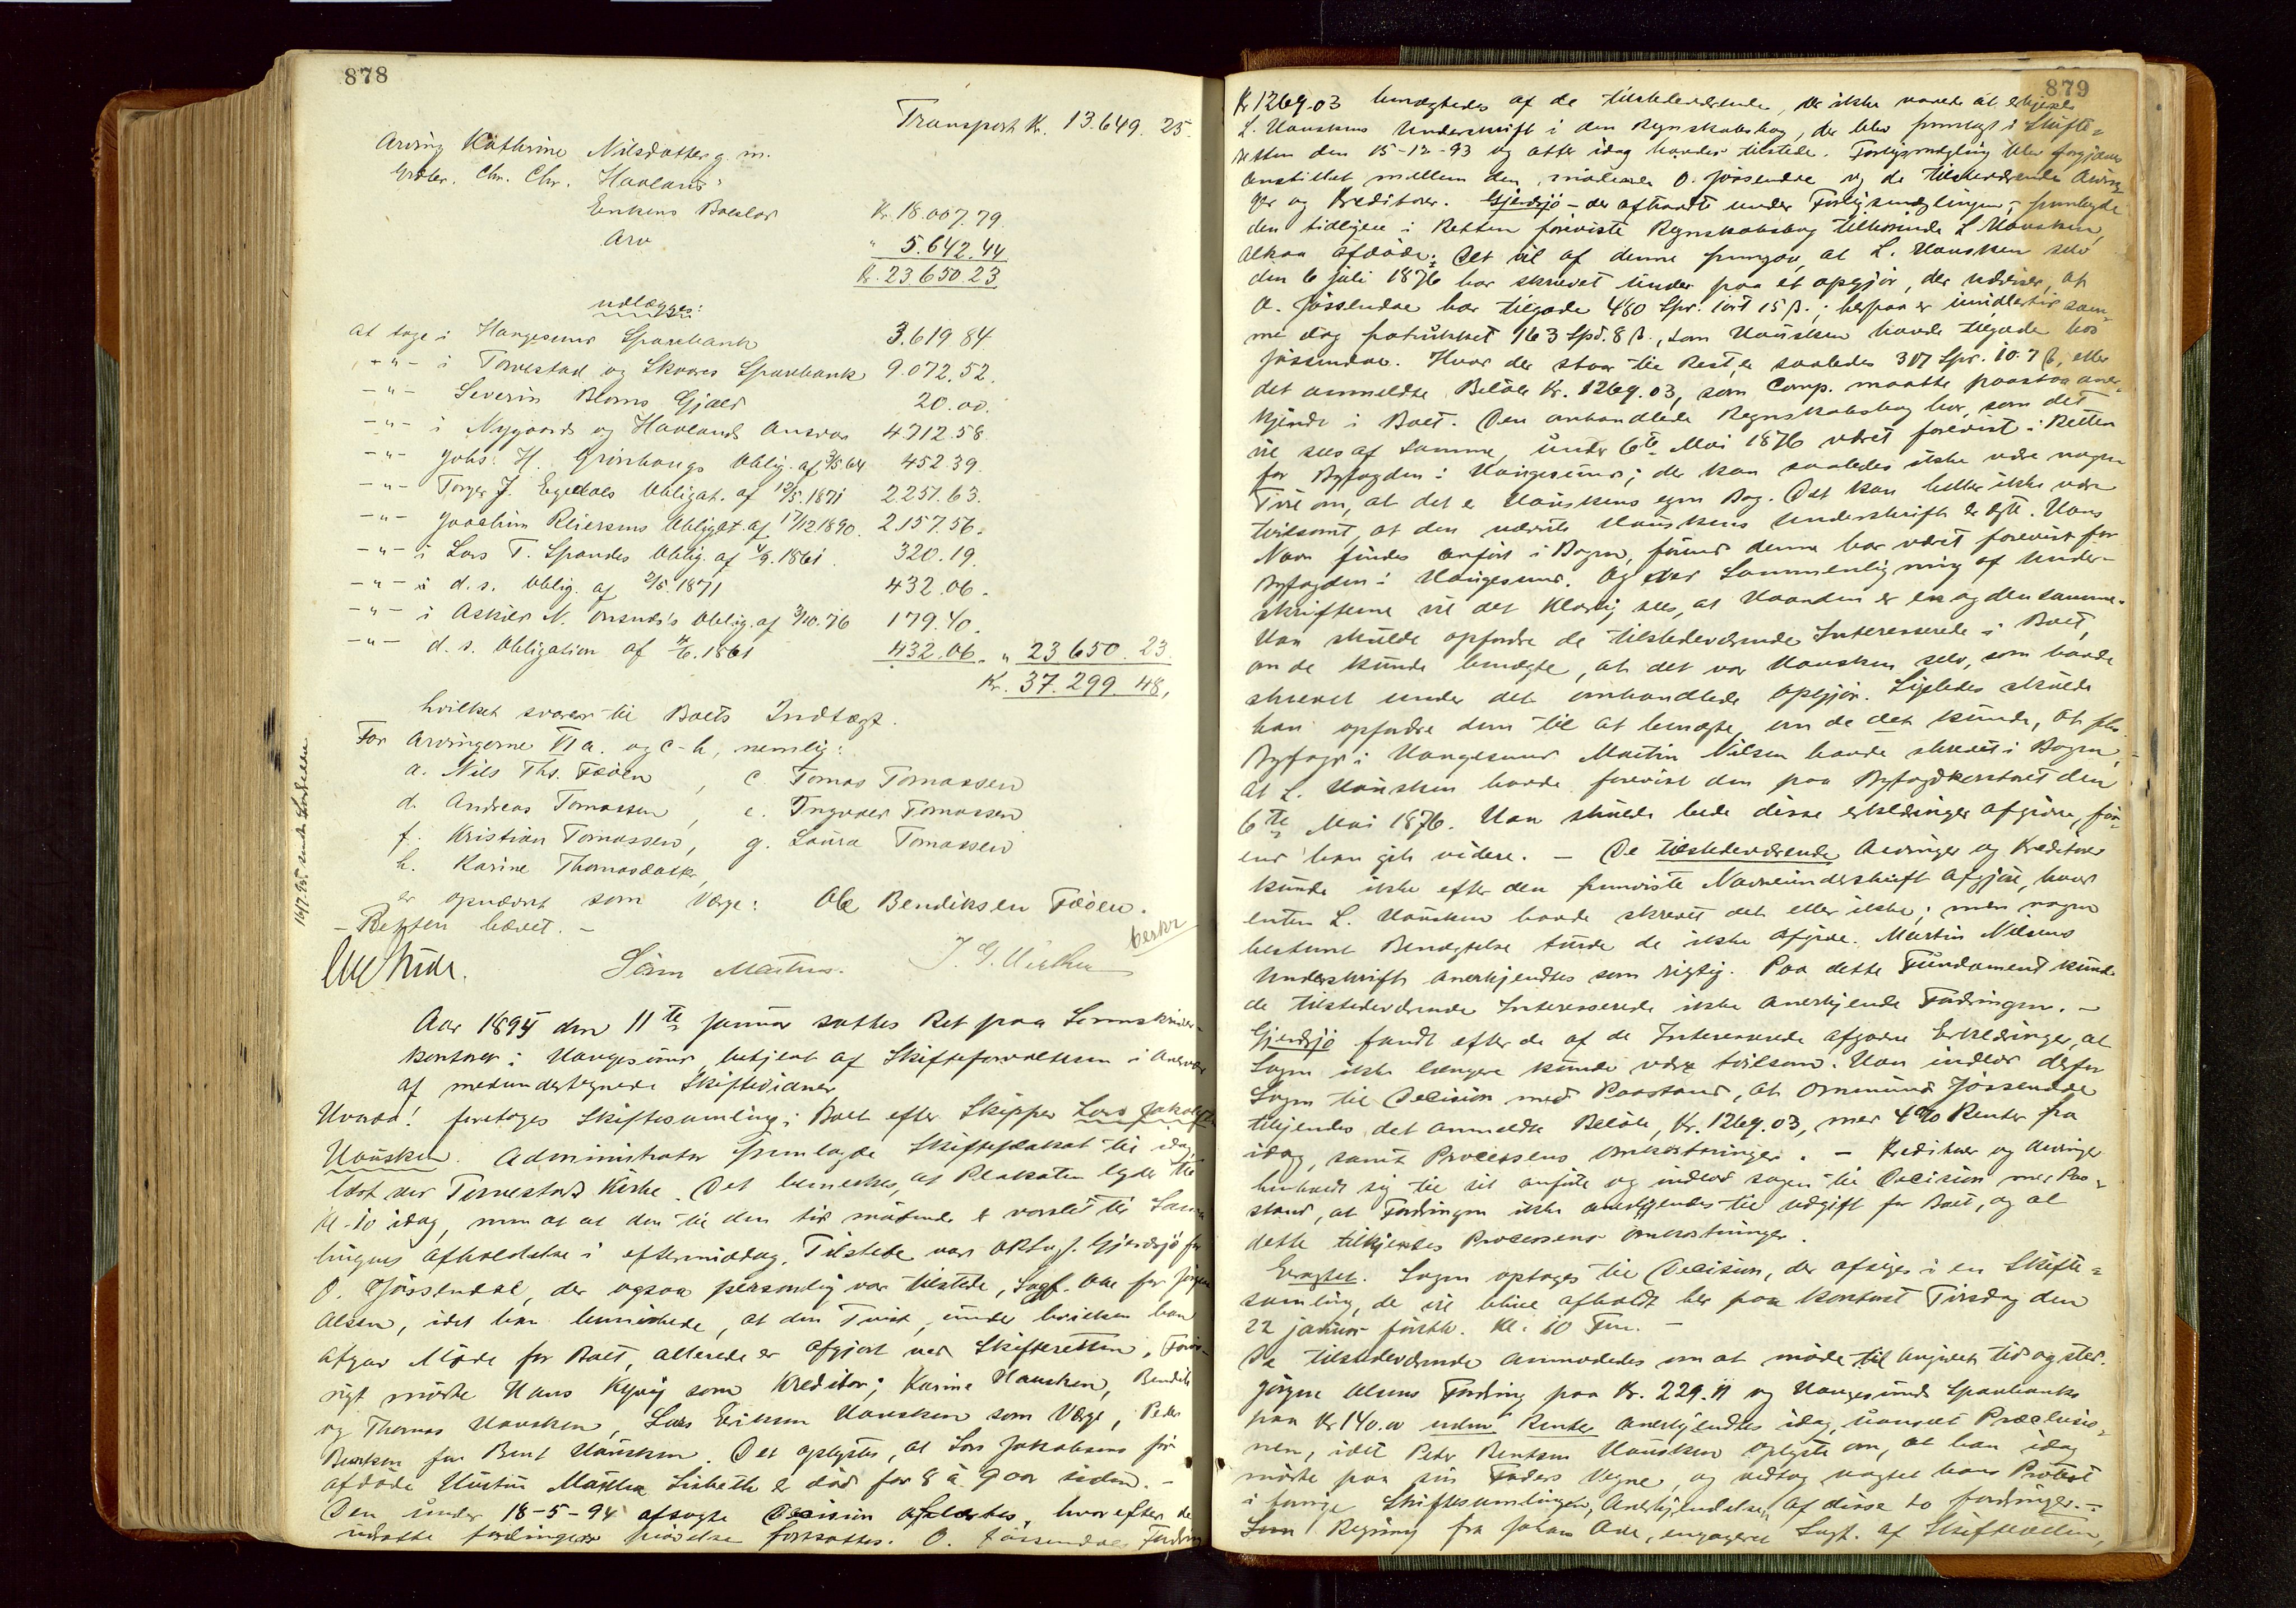 878
Transport Kr. 13.649. 25.
Arving Kathrine Nilsdatter g. m.
Chr. Chr. Havland:
Enkens Boeslod Kr. 18.007.79.
Arv " 5.642.44
Kr. 23.650.23
udlægges:
at tage i Haugesunds Sparebank 3.619 84
-"- i Torvestad og Skaares Sparebank 9.072.52.
-"- Severin Bloms Gjæld 20.00.
-"- i Nygaards og Havlands Ansvar 4712.58.
-"- Johs. H. Grinhougs Oblig. af 3/5.64 452.39.
-"- Torger J. Egedals Obligat. af 12/5.1871 2251.63.
-"- Joachim Reiersens Obligat. af 17/12 1890. 2.157.56.
-"- i Lars T. Spandes Oblig. af 4/9.1861. 320.19.
-"- i d. s. Oblig. af 2/5.1871 432.06.
-"- i Askild N. Oblig. af 3/10.76 179.40.
-"- d. s. Obligation af /6.1861 432.06. " 23650.23.
Kr. 37.299.48,
hvilket svarer til Boets Indtægt.
For Arvingerne VI a. og c-h, nemlig:
a. Nils Ths. Fæøen, c. Tomas Tomassen
d. Andreas Tomassen, e. Ingvald Tomassen
f. Kristian Tomassen, g. Laura Tomassen
h. Karine Thomasdatter,
er opnævnt som Værge: Ole Bendiksen Fæøen.
- Retten hævet. -
beskr
Aar 1895 den 11te Januar sattes Ret paa Lensmands-
kontoret i Haugesund, betjent af Skifteforvalteren i Overvær
af medundertegnede Skiftevidner
Hvorda! foretoges Skiftesamling i Boet efter Skipper Lars Jakobsen
Hausken. Administrator fremlagde Skifteplakat til idag,
læst ved Torvestad Kirke. Det bemerkes, at Plakaten lyder til
Kl. 10 idag, men at at den til den tid mødende er varslet til Sam-
lingens Afholdelse i eftermiddag. Tilstede var O.R.Sagf. Gjerdsjø for
O. Jøssendal, der ogsaa personlig var tilstede, Sagf. Ane for Jørgen
Olsen, idet han bemerkede, at den Tvist, under hvilken han
afgav Møde for Boet, allerede er afgjort ved Skifteretten. Forøv-
rigt mødte Hans Kyvig som Kreditor; Karine Hausken, Bendik
og Thomas Hausken, Lars Eriksen Hausken som Værge, Peder
Bentsen for Bent Hausken. Det oplystes, at Lars Jakobsens før
afdøde Hustru Martha Lisbeth er død for 8 à 9 aar siden. -
Den under 18-5-94 afsagte Decision oplæstes, hvorefter de
udsatte fordringers prøvelse fortsattes. O. Jøssendals Fordring
879
Kr 1269.03 benægtedes af de tilstedeværende, der ikke vovede at erkjende
L. Hauskens Underskrift i den Regnskabsbog, der blev fremlagt i Skifte=
retten den 15-12-93 og atter idag havdes tilstede. Forligsmægling blev forgjæves
anstillet mellem den mødende O. Jøssendal og de tilstedeværende Arvin-
ger og Kreditorer. Gjerdsjø - der aftraadte under Forligsmæglingen, - fremlagde
den tidligere i Retten foreviste Regnskabsbog tilhørende L Hausken,
altsaa Afdøde: Det vil af denne fremgaa, at L. Hausken selv
den 6 juli 1876 har skrevet under paa et opgjør, der udviser, at
O. Jøssendal har tilgode 480 Spd. 1ort 15 ß.; herpaa er imidlertid sam-
me dag fratrukket 163 Spd. 8 ß., som Hausken havde tilgode hos
Jøssendal. Hvad der staar til Rest, er saaledes 317 Spd. 10. 7 ß, eller
det anmeldte Beløb Kr. 1269.03, som Comp. maatte paastaa aner-
kjendt i Boet. Den omhandlede Regnskabsbog har, som det
vil sees af samme, under 6te Mai 1876 været forevist i Retten
for Byfogden i Haugesund; der kan saaledes ikke være nogen
Tvil om, at det er Hauskens egen Bog. Det kan heller ikke være
tvilsomt, at den nævnte Hauskens Underskrift er ægte. Hans
Navn findes anført i Bogen, førend denne har været forevist for
Byfogden i Haugesund. Og ved Sammenligning af Under-
skrifterne vil det klarlig sees, at Haanden er en og den samme.
Han skulde opfordre de tilstedeværende Interesserede i Boet,
om de kunde benægte, at det var Hausken selv, som havde
skrevet under det omhandlede opgjør. Ligeledes skulde
han opfordre dem til at benægte, om de det kunde, at
Byfogd i Haugesund Martin Nilsen havde skrevet i Bogen,
at L. Hausken havde forevist den paa Byfogdkontoret den
6te Mai 1876. Han skulde bede disse erklæringer afgivne, før-
end han gik videre. - De tilstedeværende Arvinger og Kreditorer
kunde ikke efter den fremviste Navneunderskrift afgjøre, hvor-
enten L. Hausken havde skrevet det eller ikke; men nogen
bestemt Benægtelse turde de ikke afgive. Martin Nilsens
Underskrift anerkjendtes som rigtig. Paa dette Fundament kunde
de tilstedeværende Interesserede ikke anerkjende Fordringen. -
Gjerdsjø fandt efter de af de Interesserede afgivne Erklæringer, at
Sagen ikke længere kunde være tvilsom. Han indlod derfor
Sagen til Decision med Paastand, at Ommund Jøssendal
tilkjendes det anmeldte Beløb, Kr. 1269.03, med 4% Renter fra
idag, samt Processens omkostninger. - Kreditorer og Arvinger
henholdt sig til sit anførte og indlod sagen til Decision med Paa=
stand, at Fordringen ikke anerkjendes til udgift for Boet, og at
dette tilkjendes Processens omkostninger.
Eragtet. Sagen optages til Decision, der afsiges i en Skifte=
samling, de vil blive afholdt her paa Kontoret Tirsdag den
22 januar førstk. Kl. 10 Fm. -
De tilstedeværende anmodedes om at møde til angivet tid og sted.
Jørgen Olsens Fordring paa Kr. 229.11 og Haugesunds Sparebanks
paa Kr 140.00 uden Renter anerkjendtes idag, uanset Præclusio-
nen, idet Peder Bentsen Hausken oplyste om, at han idag
mødte paa sin Faders Vegne, og vedtog uagtet hans Protest
i forrige Skiftesamlingen, Anerkjendelsen af disse to fordringer. -
Regning fra Johan Ane, engageret Sagf. af Skifteretten,